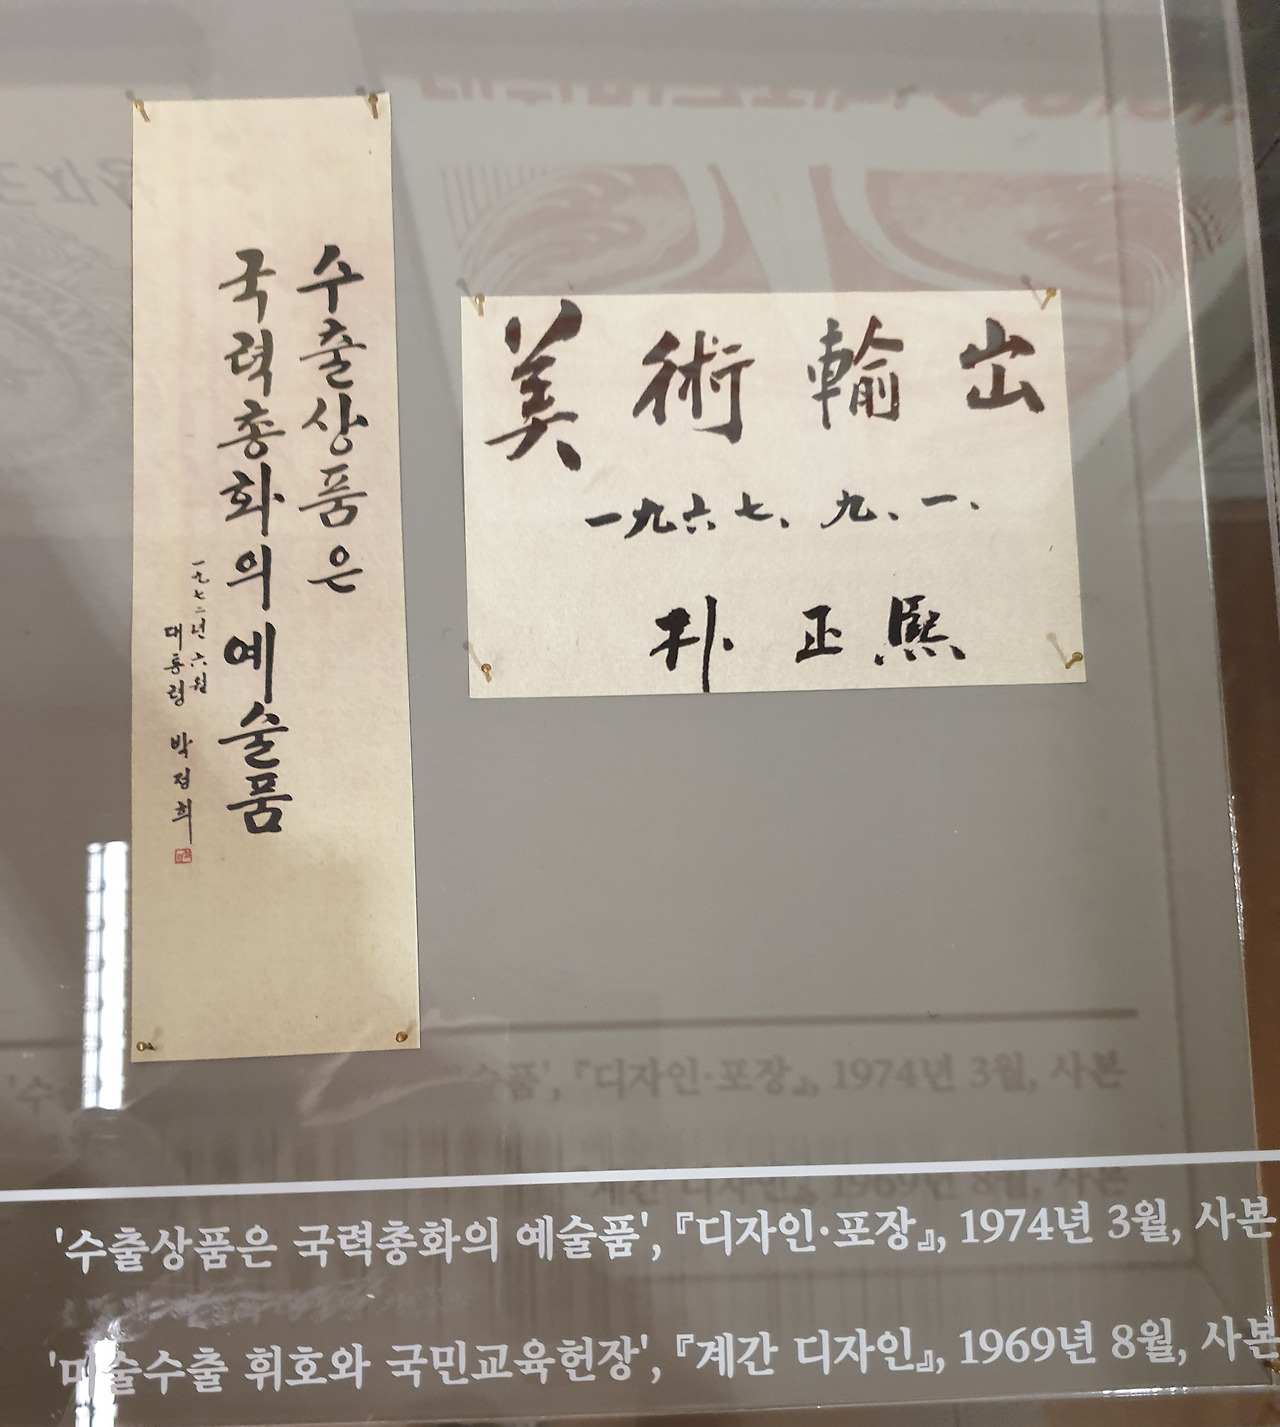 수출상품은
국력총화의 예술품
一九七二년 六월
대통령 박정희
美術輸出
一九六七、九、一、
朴正熙
'수출상품은 국력총화의 예술품', 『디자인·포장』, 1974년 3월, 사본
'미술수출 휘호와 국민교육헌장', 『계간 디자인』, 1969년 8월, 사본